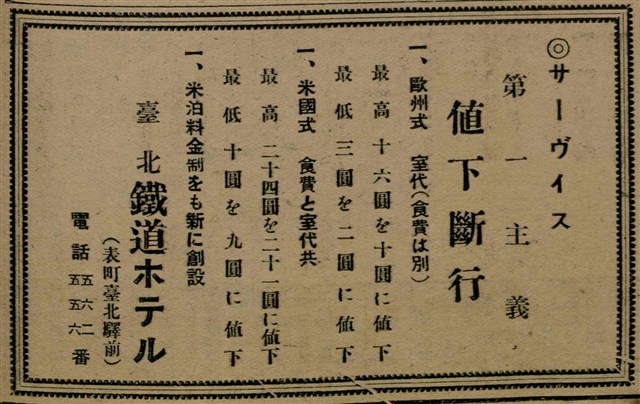 ◎サーヴイス
第一主義
値下斷行
一、歐州式　室代（食費は別）
最高十六圓を十圓に値下
最低三圓を二圓に値下
一、米國式　食費と室代共
最高二十四圓を二十一圓に値下
最低十圓を九圓に値下
一、米泊料金制をも新に創設
臺北鐵道ホテル
（表町臺北驛前）
電話五五六二
五五六番